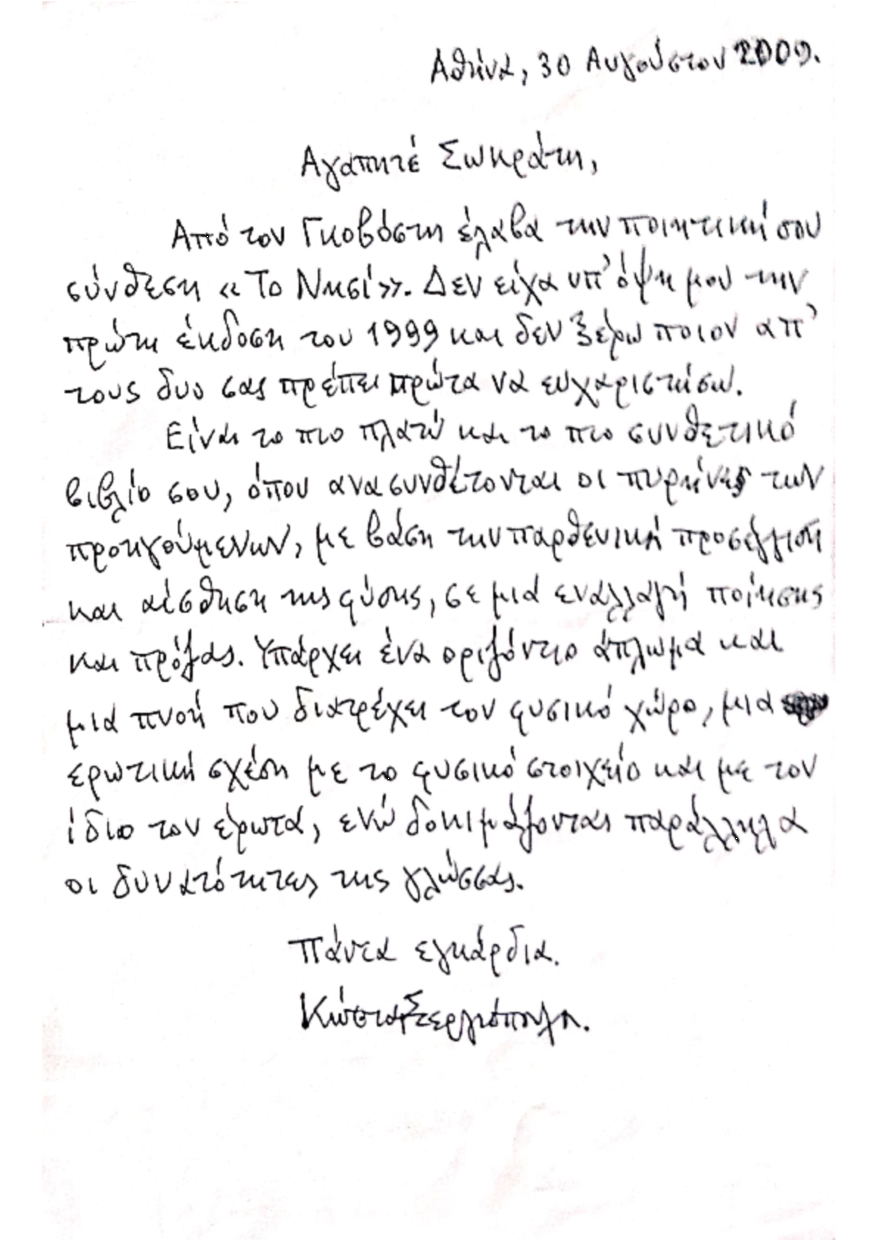 Αθήνα, 30 Αυγούστου 2009.
Αγαπητέ Σωκράτη,
Από τον Γκοβόστη έλαβα την ποιητική σου
σύνθεση «Το Νησί». Δεν είχα υπ' όψη μου την
πρώτη έκδοση του 1999 και δεν ξέρω ποιον απ'
τους δυο σας πρέπει πρώτα να ευχαριστήσω.
Είναι το πιο πλατύ και το πιο συνθετικό
βιβλίο σου, όπου ανασυνθέτονται οι πυρήνες των
προηγούμενων, με βάση την παρθενική προσέγγιση
και αίσθηση της φύσης, σε μια εναλλαγή ποίησης
και πρόζας. Υπάρχει ένα οριζόντιο άπλωμα και
μια πνοή που διατρέχει τον φυσικό χώρο, μια
ερωτική σχέση με το φυσικό στοιχείο και με τον
ίδιο τον έρωτα, ενώ δοκιμάζονται παράλληλα
οι δυνατότητες της γλώσσας.
Πάντα εγκάρδια.
Κώστας Στεργιόπουλος.